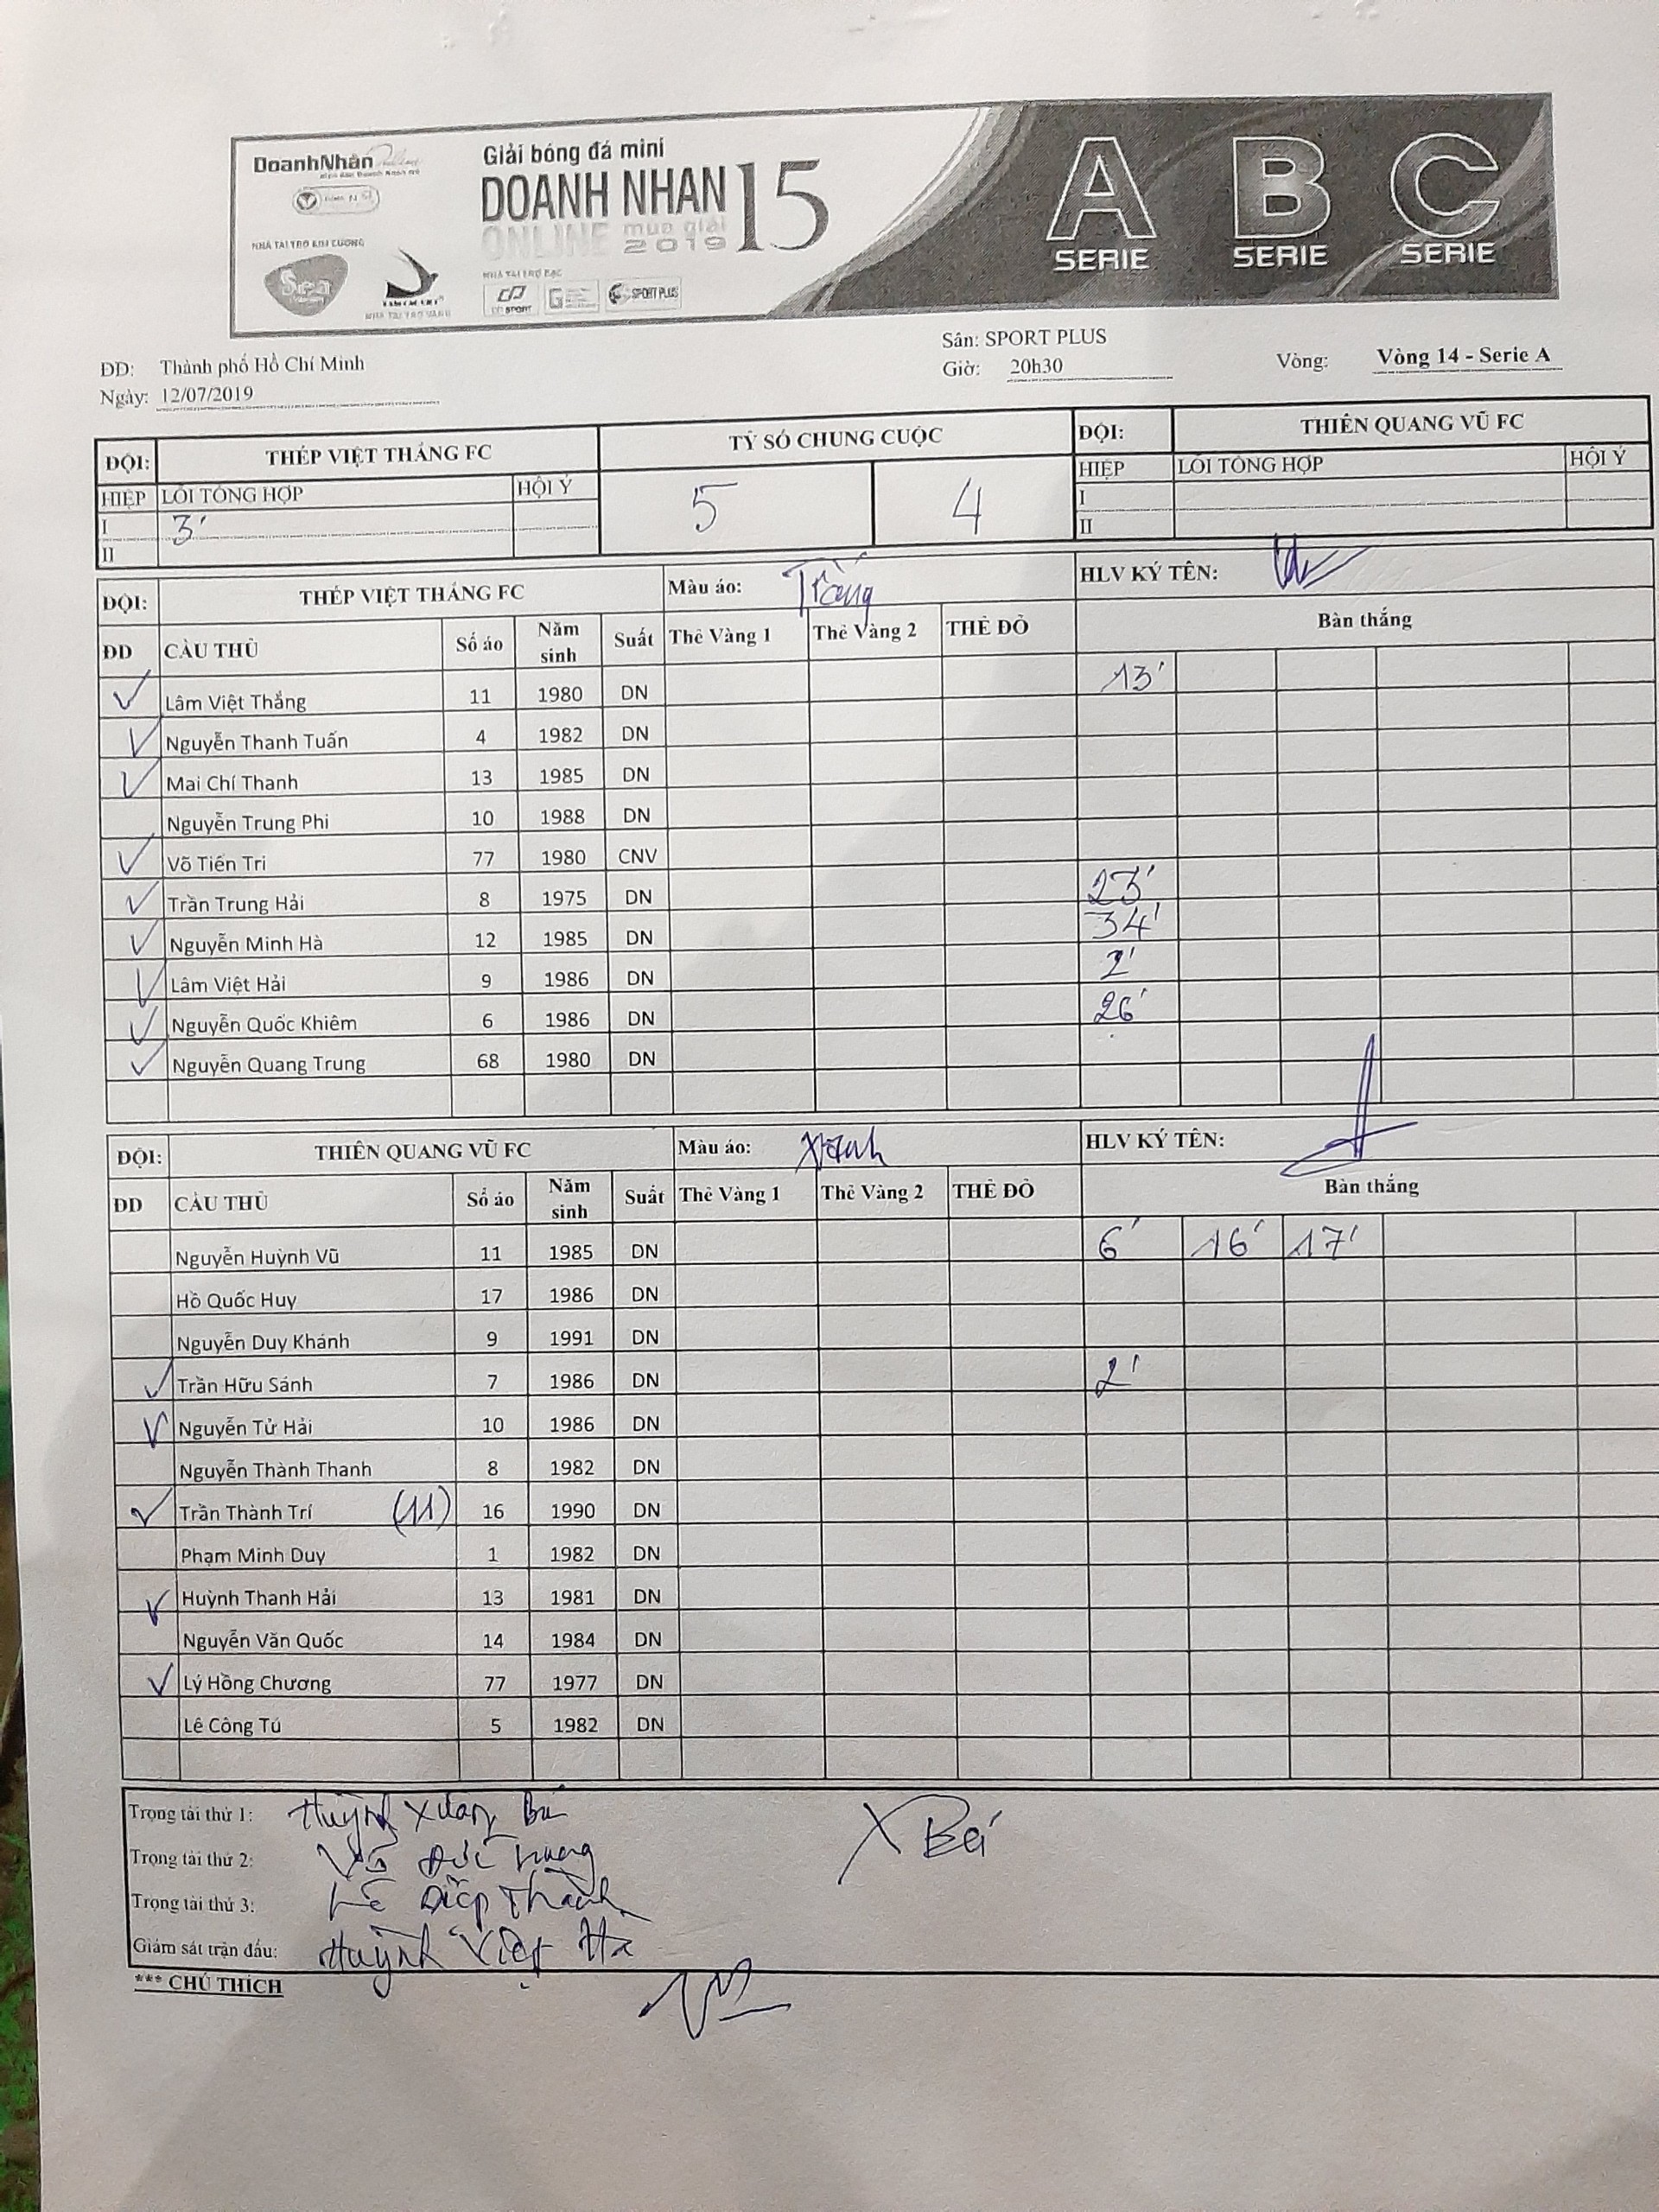 DoanhNhân
Giải bóng đá mini
DOANH NHAN 15
ONLINE mùa giải 2019
A SERIE B SERIE C SERIE
NHÀ TÀI TRỢ KIM CƯƠNG
Sea
NHÀ TÀI TRỢ VÀNG
NHÀ TÀI TRỢ BẠC
SPORT
SPORT PLUS
ĐD: Thành phố Hồ Chí Minh
Sân: SPORT PLUS
Ngày: 12/07/2019
Giờ: 20h30
Vòng: Vòng 14 - Serie A
ĐỘI: THÉP VIỆT THẮNG FC TỶ SỐ CHUNG CUỘC ĐỘI: THIÊN QUANG VŨ FC
HIỆP LỖI TỔNG HỢP HỘI Ý 5 4 HIỆP LỖI TỔNG HỢP HỘI Ý
I 3' I
II II
ĐỘI: THÉP VIỆT THẮNG FC Màu áo: Trắng HLV KÝ TÊN:
ĐD CẦU THỦ Số áo Năm sinh Suất Thẻ Vàng 1 Thẻ Vàng 2 THẺ ĐỎ Bàn thắng
Lâm Việt Thắng 11 1980 DN 13'
Nguyễn Thanh Tuấn 4 1982 DN
Mai Chí Thanh 13 1985 DN
Nguyễn Trung Phi 10 1988 DN
Võ Tiến Tri 77 1980 CNV
Trần Trung Hải 8 1975 DN 23'
Nguyễn Minh Hà 12 1985 DN 34'
Lâm Việt Hải 9 1986 DN 2'
Nguyễn Quốc Khiêm 6 1986 DN 26'
Nguyễn Quang Trung 68 1980 DN
ĐỘI: THIÊN QUANG VŨ FC Màu áo: Xanh HLV KÝ TÊN:
ĐD CẦU THỦ Số áo Năm sinh Suất Thẻ Vàng 1 Thẻ Vàng 2 THẺ ĐỎ Bàn thắng
Nguyễn Huỳnh Vũ 11 1985 DN 6' 16' 17'
Hồ Quốc Huy 17 1986 DN
Nguyễn Duy Khánh 9 1991 DN
Trần Hữu Sánh 7 1986 DN 2'
Nguyễn Tử Hải 10 1986 DN
Nguyễn Thành Thanh 8 1982 DN
Trần Thành Trí (11) 16 1990 DN
Phạm Minh Duy 1 1982 DN
Huỳnh Thanh Hải 13 1981 DN
Nguyễn Văn Quốc 14 1984 DN
Lý Hồng Chương 77 1977 DN
Lê Công Tú 5 1982 DN
Trọng tài thứ 1: Huỳnh Xuân
Trọng tài thứ 2: Võ Đức
Trọng tài thứ 3: Lê Điệp Thành
Giám sát trận đấu: Huỳnh Việt Hà
*** CHÚ THÍCH